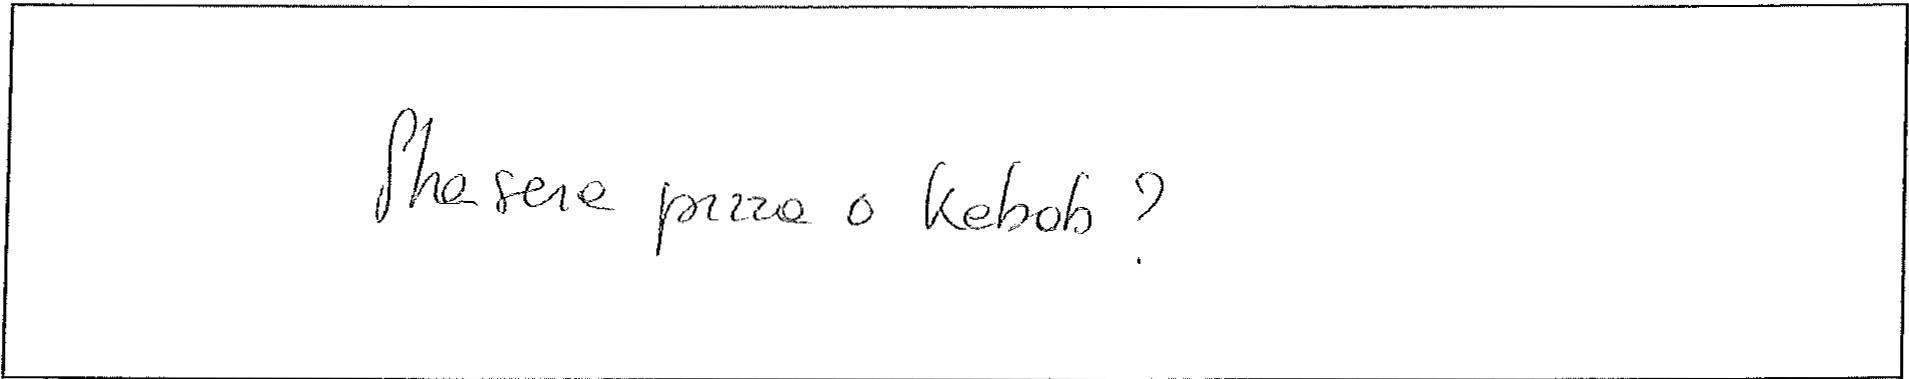 Stasera pizza o Kebab?